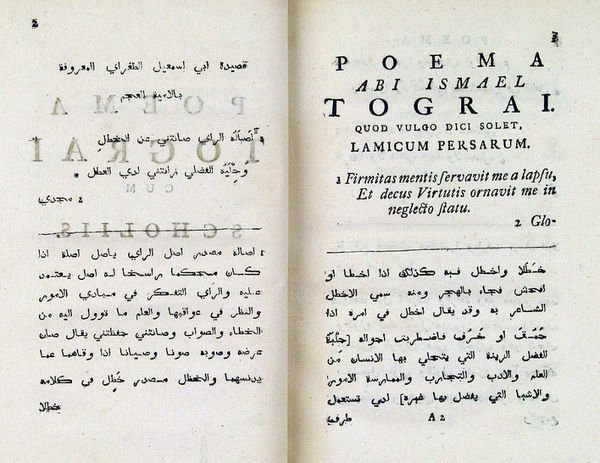 2
قصيدة ابي اسمعيل الطغراي المعروفة
بالامية العجم
1 أصالة الراي صانتني عن الخطل
وحلية الفضل زانتني لدي العطل
2 مجدي
1 اصالة مصدر اصل الراي ياصل اصلة اذا
كان مستحكما راسخا له اصل يعتمد
عليه والراي التفكر في مبادي الامور
والنظر في عواقبها والعلم ما توول اليه من
الخطاء والصواب وصانتني حفظتني يقال صان
عرضه وصوبه صونا وصيانا اذا وقاهما عما
يدنسهما والخطل مصدر خطل في كلامه
خطلا
3
POEMA
ABI ISMAEL
TOGRAI.
QUOD VULGO DICI SOLET,
LAMICUM PERSARUM.
1 Firmitas mentis servavit me a lapsu,
Et decus Virtutis ornavit me in
neglecto statu.
2 Glo-
خطلا واخطل فيه كذلك اذا اخطا او
افحش فجاء بالهجر ومنه سمي الاخطل
الشاعر به وقد يقال اخطل في امره اذا
حمق او خرف فاضطربت احواله [حلية
الفضل الزينة التي يتحلي بها الانسان من
العلم والادب والتجارب والممارسة الامور
والاشيا التي يفضل بها غيره] لدي تستعمل
A 2 طرفية